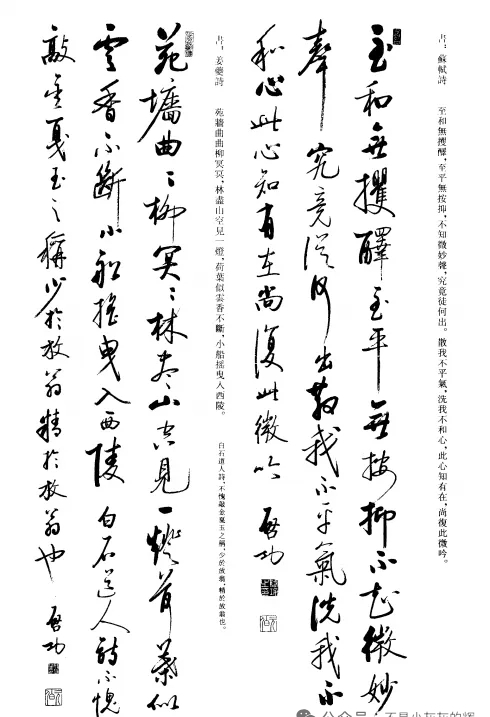 書，蘇軾詩　至和無攫醳，至平無按抑，不知微妙聲，究竟從何出。散我不平氣，洗我不和心，此心知有在，尚復此微吟。
至和無攫醳至平無按抑不知微妙
聲究竟從何出散我不平氣洗我不
和心此心知有在尚復此微吟 啓功
書，姜夔詩　苑牆曲曲柳冥冥，林盡山空見一燈，荷葉似雲香不斷，小船搖曳入西陵。　白石道人詩，不愧敲金戛玉之稱，少於放翁，精於放翁也。
苑墻曲〻柳冥〻林盡山空見一燈荷葉似
雲香不斷小船搖曳入西陵 白石道人詩不愧
敲金戛玉之稱少於放翁精於放翁也 啓功